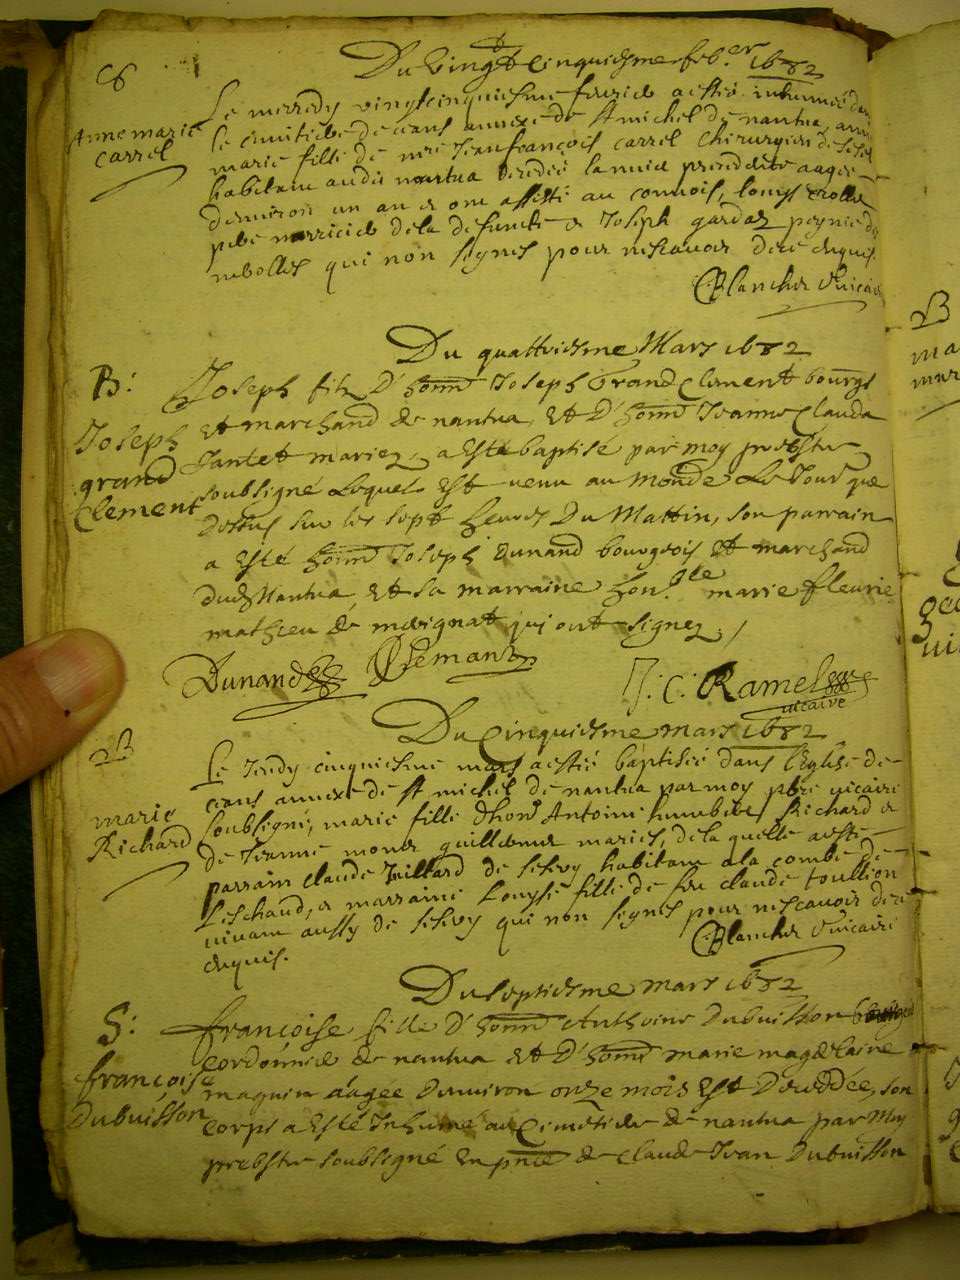 Du vingt Cinquiesme feb.er 1682
S
Anne marie
Carrel
Le mercredy vingtcinquiesme fevrier a esté inhumée dans
le cimitiere de ceans annexe de st michel de nantua, anne
marie fille de mre Jeanfrançois carrel Chirurgien de
habitant audit nantua decedée la nuit precedente aagée
denviron un an et ont assisté au convois, louys
pere nourricier dela defuncte et Joseph gardaz peynie de
nibolles qui non signes pour nescavoir de ce enquis.
C. Blanchet Vicaire
Du quattriesme Mars 1682
B:
Joseph
grand
Clement
Joseph filz D'honn Joseph Grand Clement bourgs
et marchand de nantua, Et D'honn Jeanne Clauda
Jantet mariez, a Esté baptisé par moy prebstre
soubsigné Lequel est venu au Monde Le Jour que
Dessus sur les sept heures Du Mattin, son parrain
a Esté honn Joseph Dunand bourgeois Et marchand
dudt Nantua, Et sa marraine hon.ble marie fleurie
mathieu de merignat qui ont signez /
Dunand
J: C: Ramel
vicaire
Du Cinquiesme mars 1682
B
marie
Richard
Le Jeudy cinquiesme mars a esté baptisée dans l'Eglise de
ceans annexe de st michel de nantua par moy pbre vicaire
soubsigné, marie fille dhon Antoine humbert Richard et
de Jeanne monet guillermet mariés, de la quelle a esté
parrain claude Juillard de habitant a la combe de
Leschaud, et marraine Louyse fille de feu claude toullion
vivant aussy de qui non signes pour nescavoir de ce
enquis.
C. Blanchet Vicaire
Du septiesme mars 1682
S:
françoise
Dubuisson
françoise fille D'honn Anthoine Dubuisson
Cordonnier de nantua Et D'honn marie magdelaine
maguin aagée Denviron onze mois est Deceddée, son
corps a Esté Inhumé au Cimetiere de nantua par Moy
prebstre soubsigné En pnce de Claude Jean Dubuisson